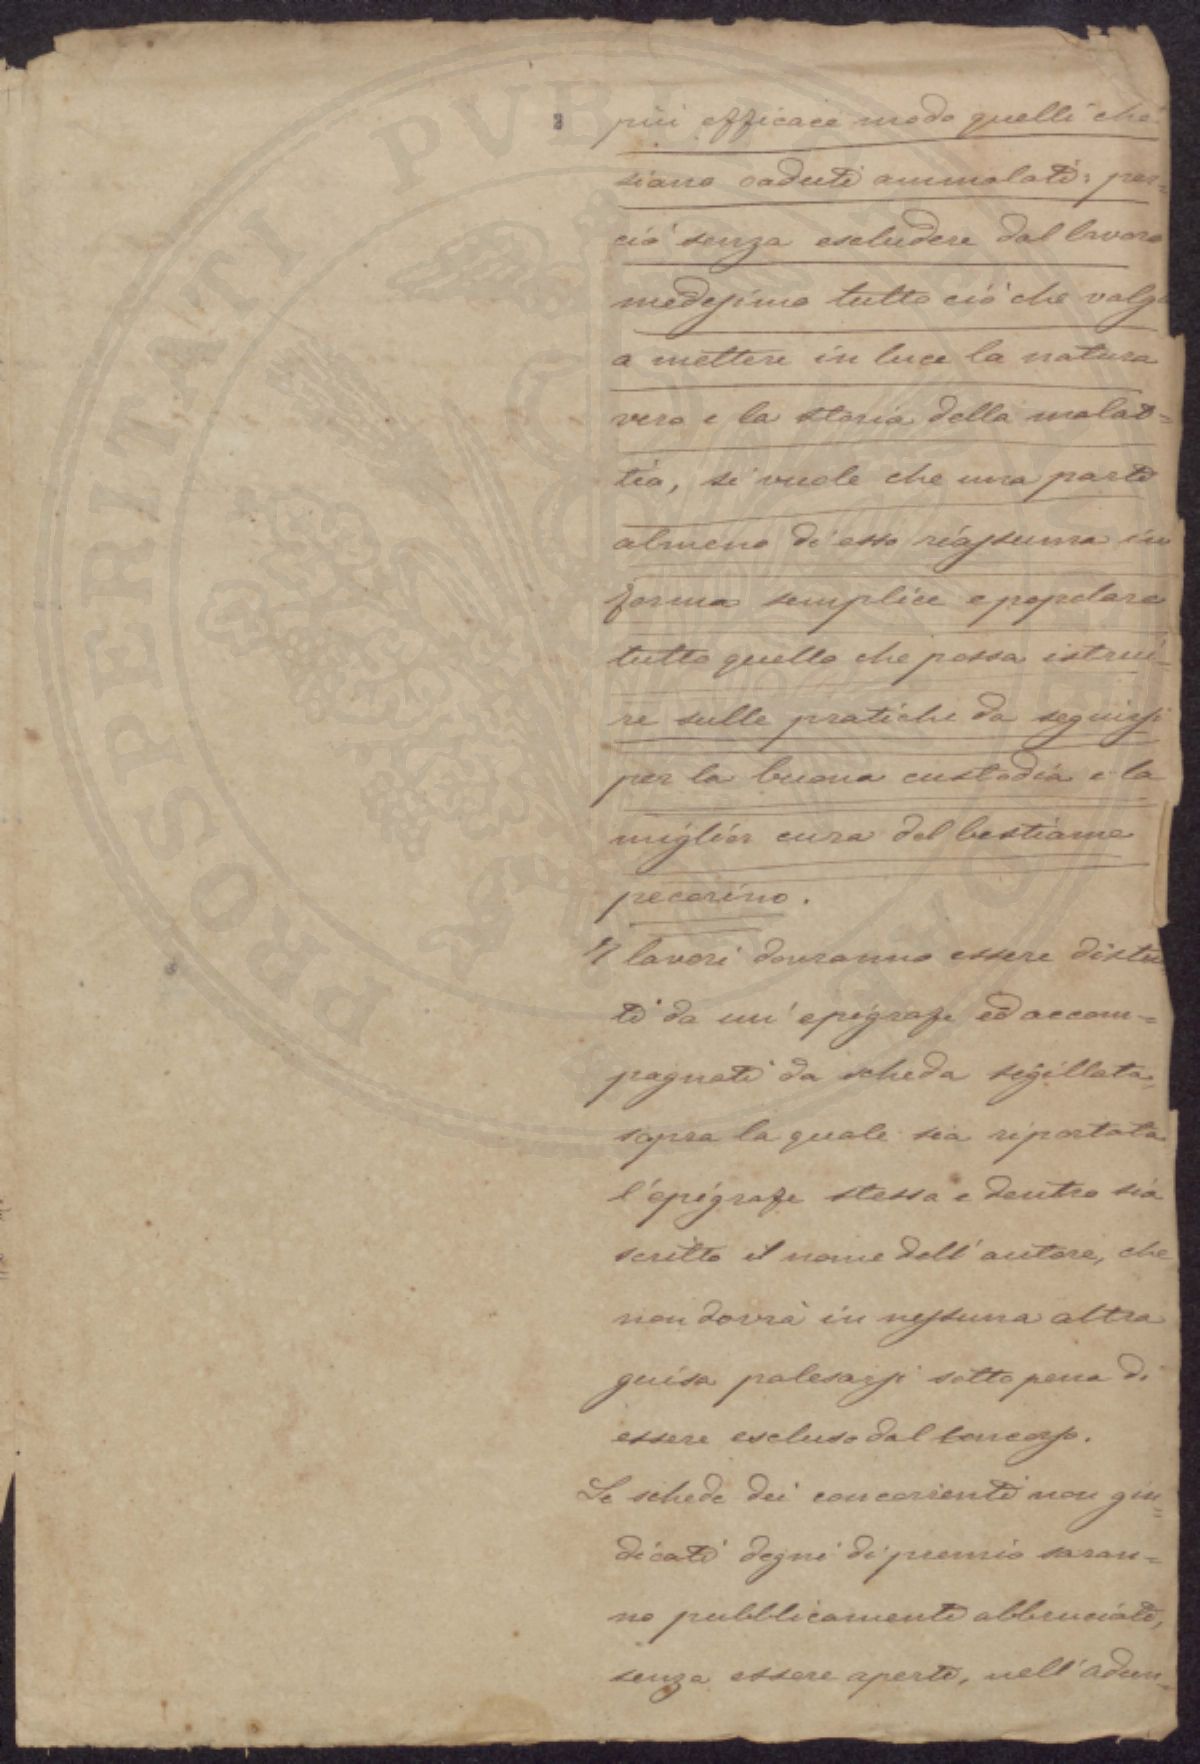 più efficace modo quelli che
siano caduti ammalati; per=
ciò senza escludere dal lavoro
medesimo tutto ciò che valga
a mettere in luce la natura
vera e la storia della malat=
tia, si vuole che una parte
almeno di esso riassuma in
forma semplice e popolare
tutto quello che possa istrui=
re sulle pratiche da seguirsi
per la buona custodia e la
miglior cura del bestiame
pecorino.
I lavori dovranno essere distin
ti da un' epigrafe ed accom=
pagnati da scheda sigillata,
sopra la quale sia riportata
l'epigrafe stessa e dentro sia
scritto il nome dell'autore, che
non dovrà in nessuna altra
guisa palesarsi sotto pena di
essere escluso dal concorso.
Le schede dei concorrenti non giu=
dicati degni di premio saran=
no pubblicamente abbruciate,
senza essere aperte, nell'adun=
PROSPERITATI PVBLICAE